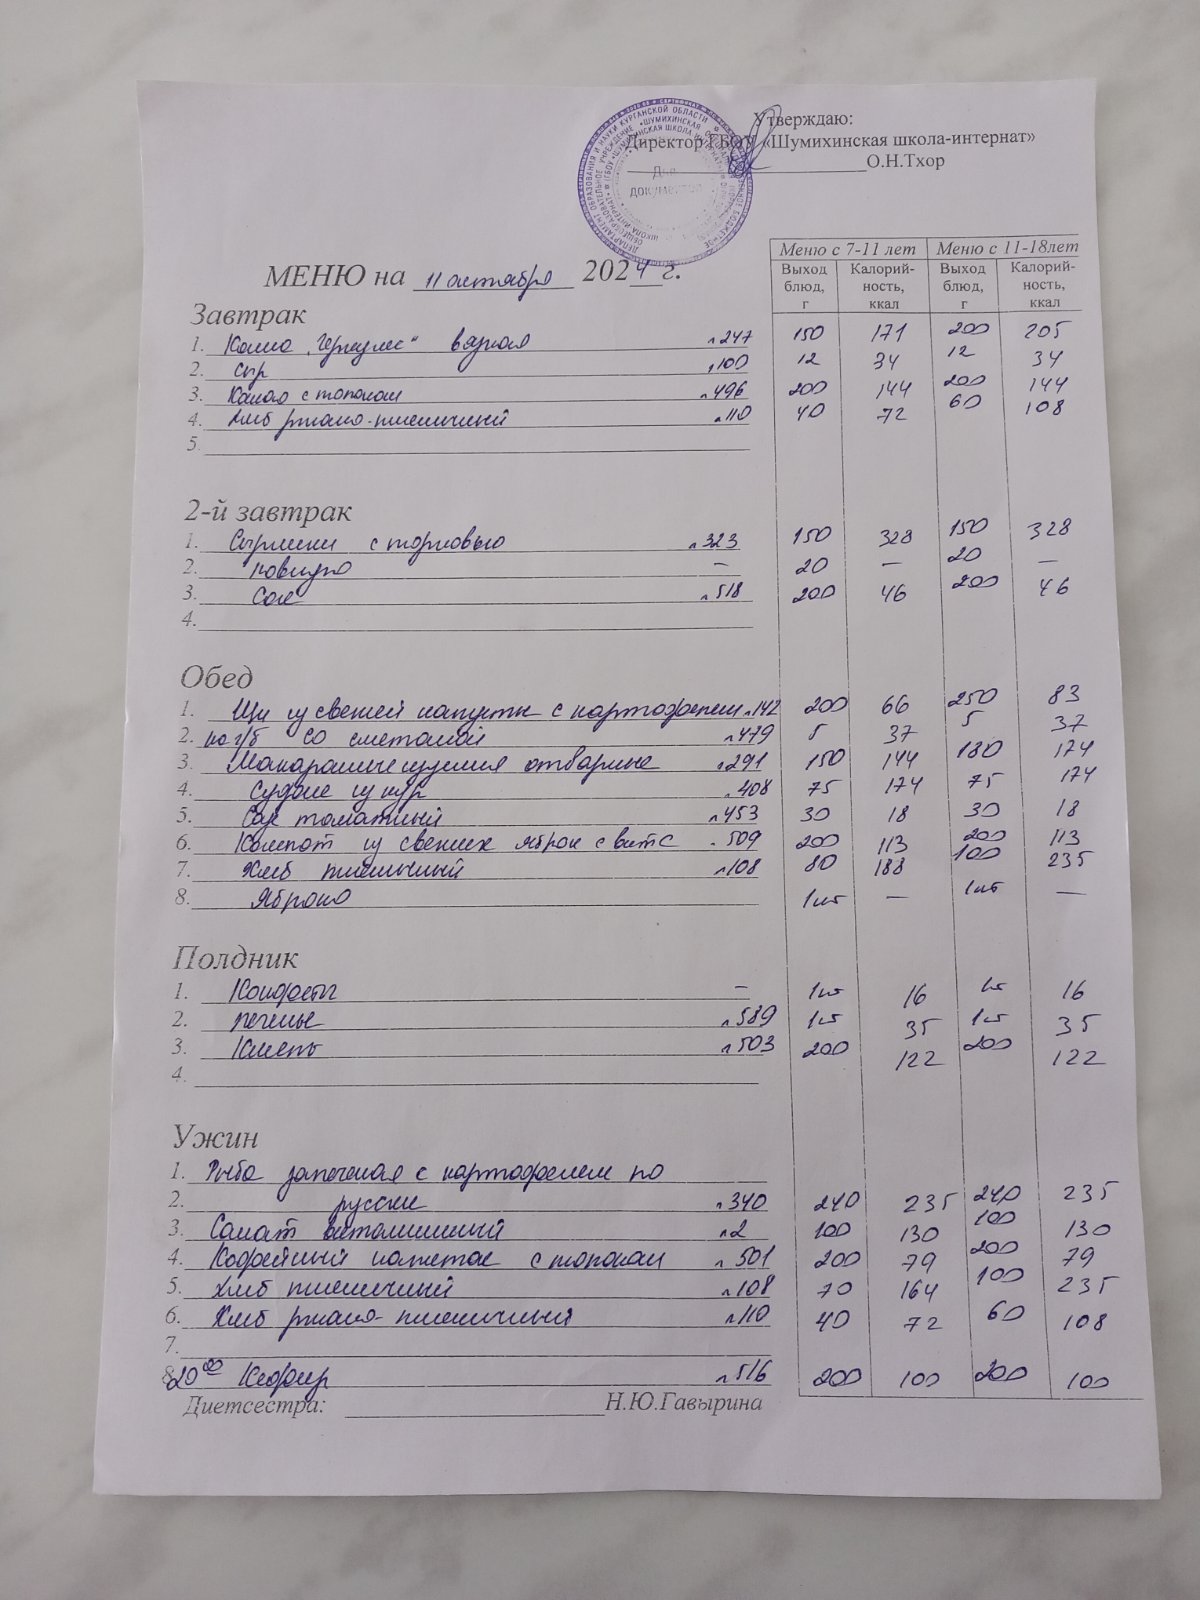 Утверждаю:
Директор ГБОУ «Шумихинская школа-интернат»
О.Н.Тхор
Для
документов
МЕНЮ на 11 октября 2024 г.
Меню с 7-11 лет Меню с 11-18лет
Выход блюд, г Калорий-ность, ккал Выход блюд, г Калорий-ность, ккал
Завтрак
1. Каша "Геркулес" вязкая л247 150 171 200 205
2. Сыр л100 12 34 12 34
3. Какао с молоком л496 200 144 200 144
4. Хлеб ржано-пшеничный л110 40 72 60 108
5.
2-й завтрак
1. Сырники с морковью л323 150 328 150 328
2. повидло — 20 — 20 —
3. Сок л518 200 46 200 46
4.
Обед
1. Щи из свежей капусты с картофелем л142 200 66 250 83
2. на г/б со сметаной л479 5 37 5 37
3. Макаронные изделия отварные л291 150 144 180 174
4. Суфле из кур л408 75 174 75 174
5. Соус томатный л453 30 18 30 18
6. Компот из свежих яблок с вит С л509 200 113 200 113
7. Хлеб пшеничный л108 80 188 100 235
8. Яблоко 1шт — 1шт —
Полдник
1. Конфеты — 1шт 16 1шт 16
2. печенье л589 1шт 35 1шт 35
3. Кисель л503 200 122 200 122
4.
Ужин
1. Рыба запеченая с картофелем по
2. русски л340 240 235 240 235
3. Салат витаминный л2 100 130 100 130
4. Кофейный напиток с молоком л501 200 79 200 79
5. Хлеб пшеничный л108 70 164 100 235
6. Хлеб ржано-пшеничный л110 40 72 60 108
7.
8. 20⁰⁰ Кефир л516 200 100 200 100
Диетсестра: Н.Ю.Гавырина